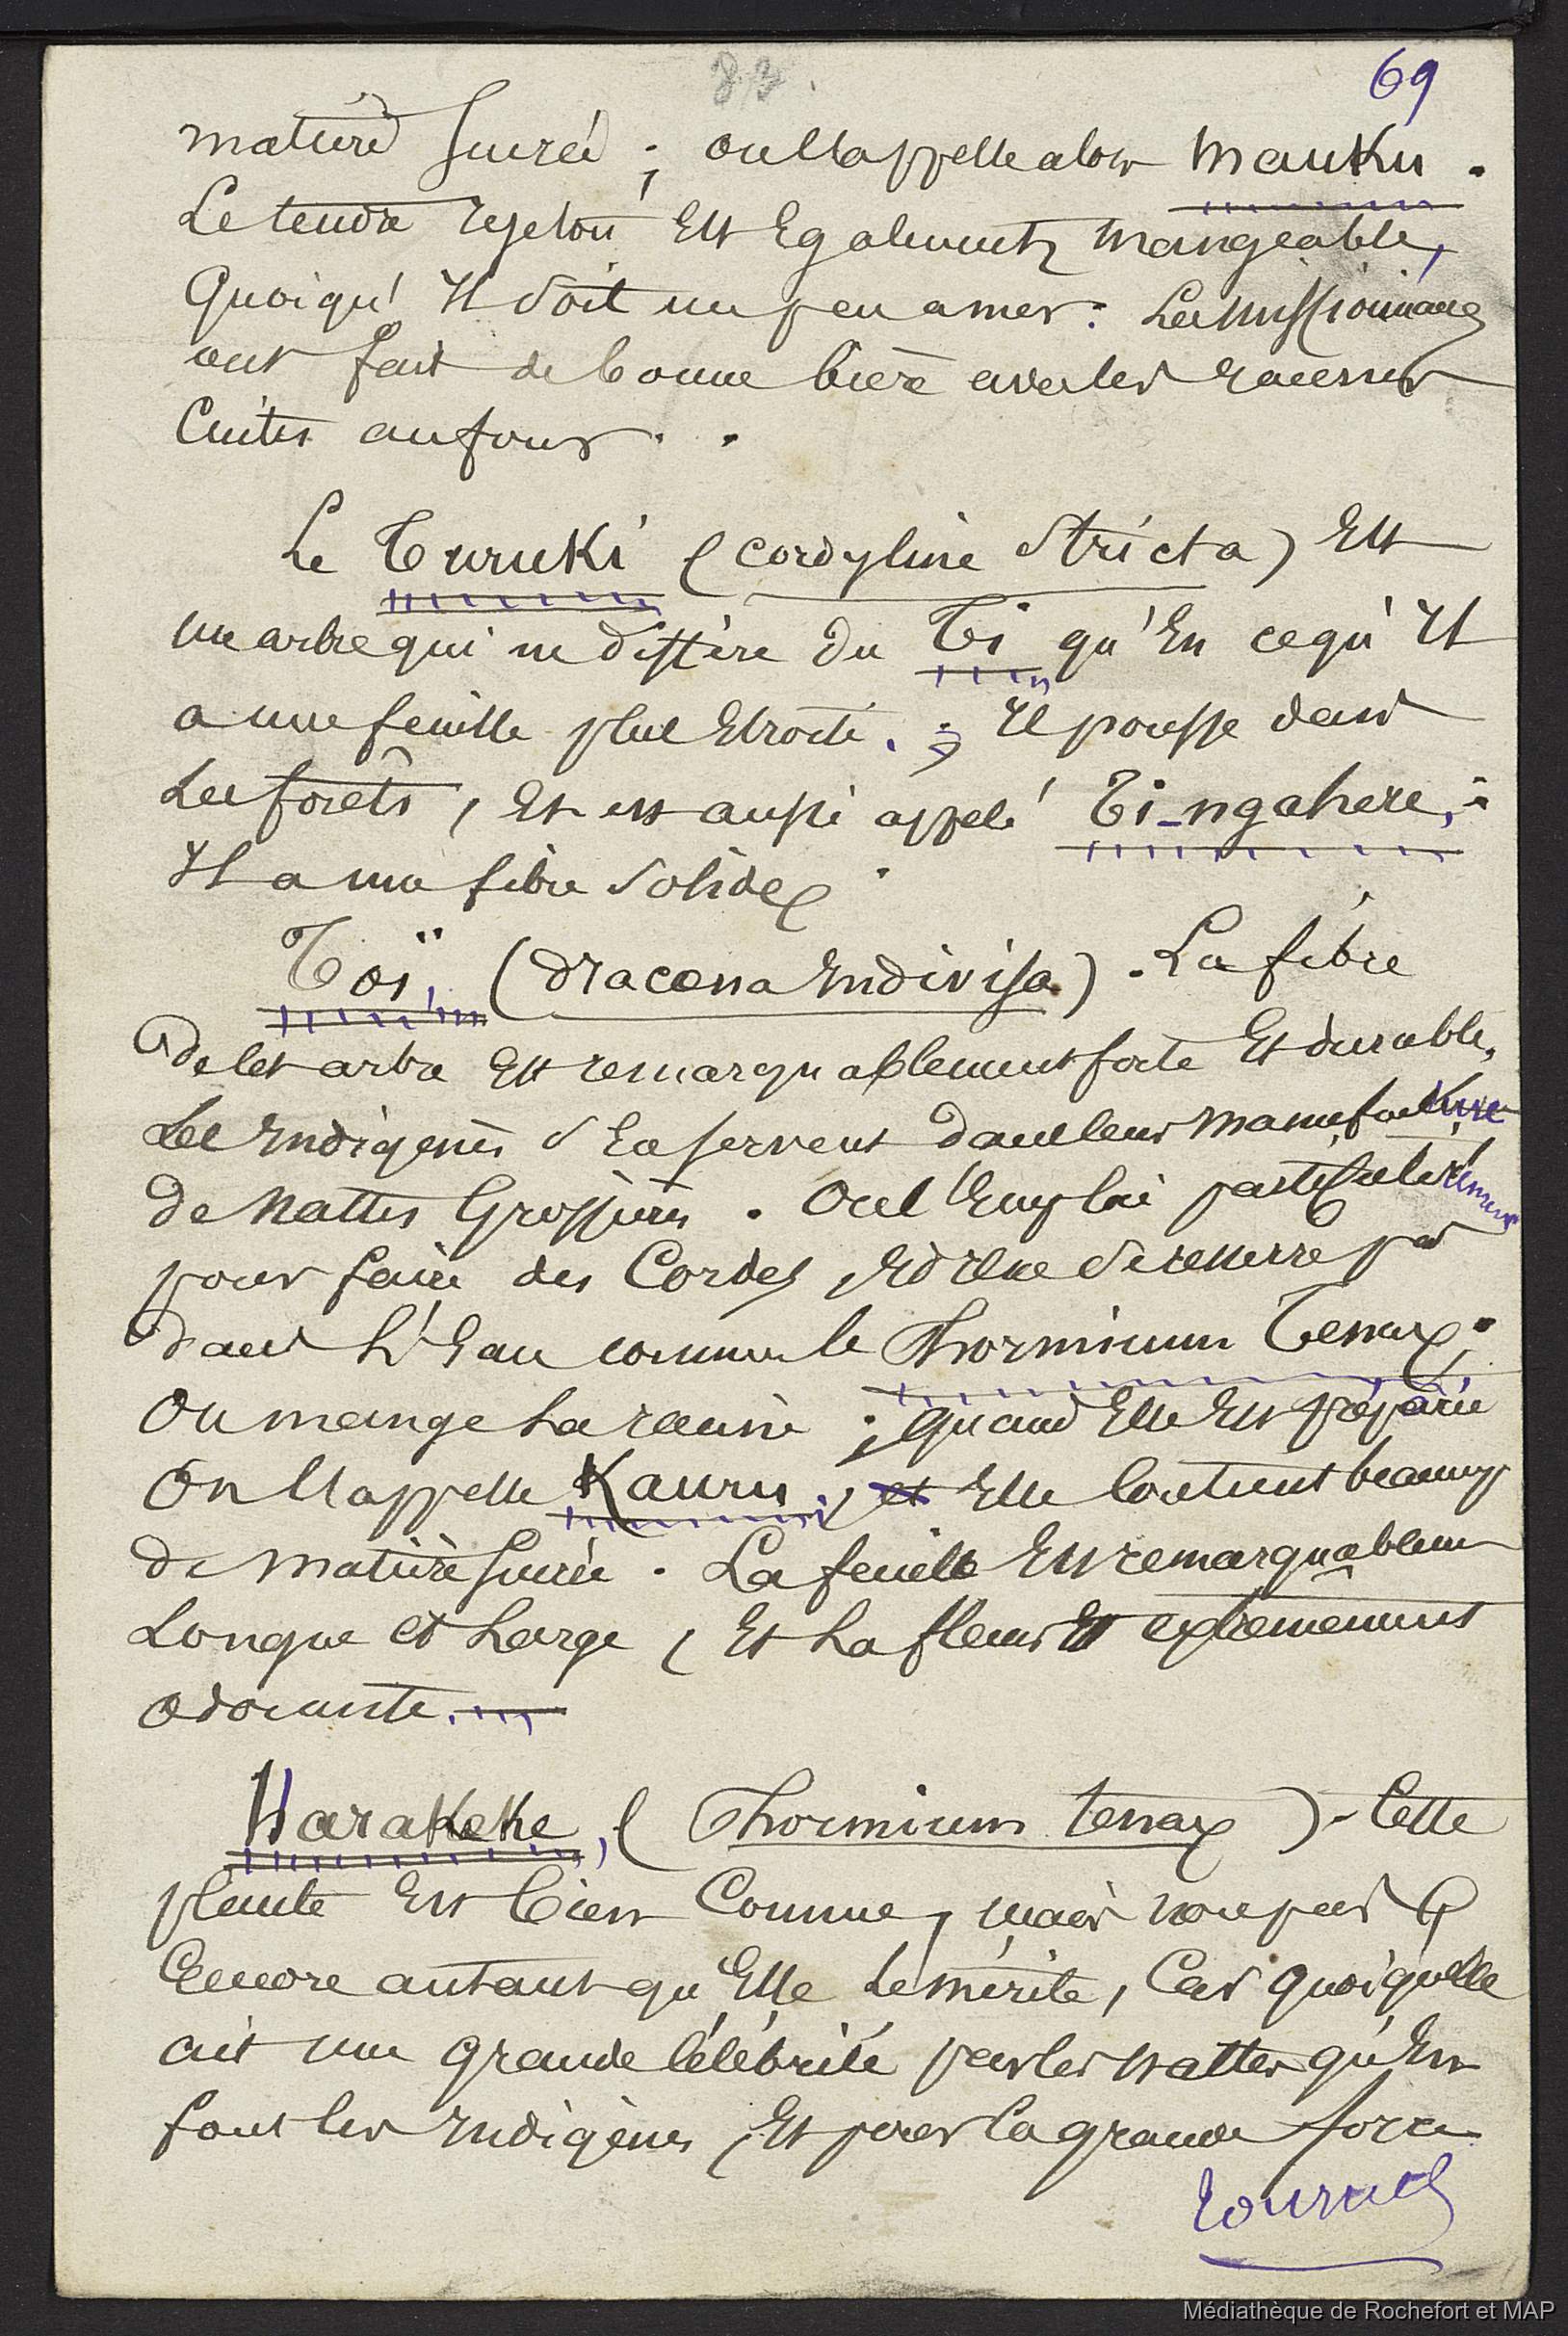 83.
69
matière sucrée ; on l'appelle alors Mauku.
Le tendre rejeton Est Egalement mangeable,
Quoiqu' Il soit un peu amer. Les missionnaires
ont fait de bonne bière avec les racines
Cuites au four.
Le Turuki (Cordyline Stricta) Est
un arbre qui ne diffère du Ti qu'En ce qu' Il
a une feuille plus Etroite. ; Il pousse dans
Les forêts, Et est aussi appelé Ti-ngahere,
Il a une fibre Solide
Toï, (dracœna Indivisa). La fibre
de cet arbre Est remarquablement forte Et durable.
Les Indigènes s'En servent dans leur manufacture
de Nattes Grossières. On l'Emploie particulièrement
pour faire des Cordes, Et Elle se resserre pas
dans L'Eau comme le Phormium Tenax.
On mange La racine ; quand Elle Est préparée
On l'appelle Kauru, et Elle Contient beaucoup
de matière sucrée. La feuille Est remarquablement
Longue et Large, Et La fleur Est extrêmement
odorante.
Harakeke, (Phormium tenax). Cette
plante Est bien Connue, mais non pas
Encore autant qu'Elle Le mérite, Car quoiqu'elle
ait une grande Célébrité par les nattes qu'En
font les Indigènes, Et pour la grande force
tournez
Médiathèque de Rochefort et MAP